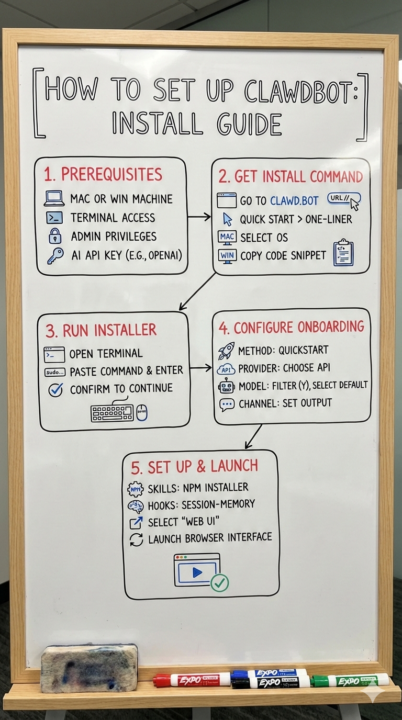 HOW TO SET UP CLAWDBOT:
INSTALL GUIDE
1. PREREQUISITES
MAC OR WIN MACHINE
TERMINAL ACCESS
ADMIN PRIVILEGES
AI API KEY (E.G., OPENAI)
2. GET INSTALL COMMAND
GO TO CLAWD.BOT URL//
QUICK START > ONE-LINER
MAC SELECT OS
WIN COPY CODE SNIPPET
3. RUN INSTALLER
OPEN TERMINAL
sudo... PASTE COMMAND & ENTER
CONFIRM TO CONTINUE
4. CONFIGURE ONBOARDING
METHOD: QUICKSTART
API PROVIDER: CHOOSE API
MODEL: FILTER (Y), SELECT DEFAULT
CHANNEL: SET OUTPUT
5. SET UP & LAUNCH
NPM SKILLS: NPM INSTALLER
HOOKS: SESSION-MEMORY
SELECT "WEB UI"
LAUNCH BROWSER INTERFACE
EXPO
EXPO
EXPO
EXPO